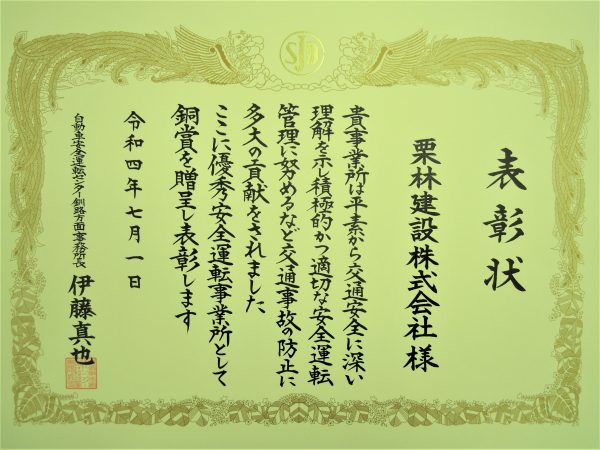 SJD
表彰状
栗林建設株式会社様
貴事業所は平素から交通安全に深い
理解を示し積極的かつ適切な安全運転
管理に努めるなど交通事故の防止に
多大の貢献をされました
ここに優秀安全運転事業所として
銅賞を贈呈し表彰します
令和四年七月一日
自動車安全運転センター釧路方面事務所長
伊藤真也